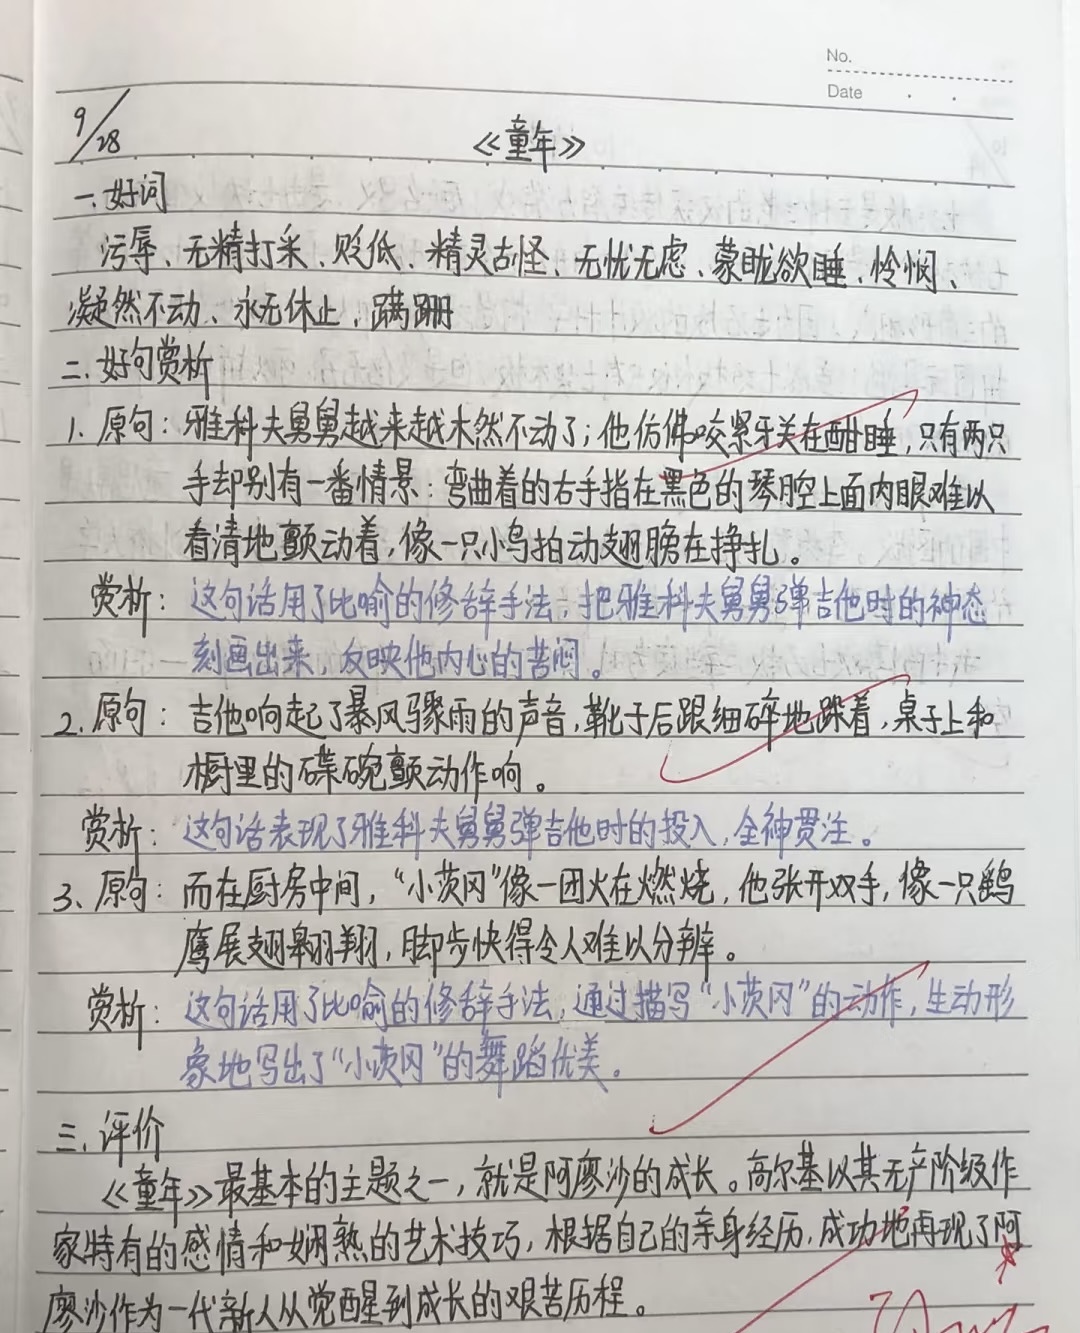 No.
Date
9/28
《童年》
一.好词
污辱、无精打采、贬低、精灵古怪、无忧无虑、蒙眬欲睡、怜悯、
凝然不动、永无休止、蹒跚
二.好句赏析
1. 原句：雅科夫舅舅越来越木然不动了；他仿佛咬紧牙关在酣睡，只有两只
手却别有一番情景：弯曲着的右手指在黑色的琴腔上面内眼难以
看清地颤动着，像一只小鸟拍动翅膀在挣扎。
赏析：这句话用了比喻的修辞手法，把雅科夫舅舅弹吉他时的神态
刻画出来，反映他内心的苦闷。
2. 原句：吉他响起了暴风骤雨的声音，靴子后跟细碎地跺着，桌子上和
橱里的碟碗颤动作响。
赏析：这句话表现了雅科夫舅舅弹吉他时的投入，全神贯注。
3、原句：而在厨房中间，“小茨冈”像一团火在燃烧，他张开双手，像一只鹞
鹰展翅翱翔，脚步快得令人难以分辨。
赏析：这句话用了比喻的修辞手法，通过描写“小茨冈”的动作，生动形
象地写出了“小茨冈”的舞蹈优美。
三.评价
《童年》最基本的主题之一，就是阿廖沙的成长。高尔基以其无产阶级作
家特有的感情和娴熟的艺术技巧，根据自己的亲身经历，成功地再现了阿
廖沙作为一代新人从觉醒到成长的艰苦历程。